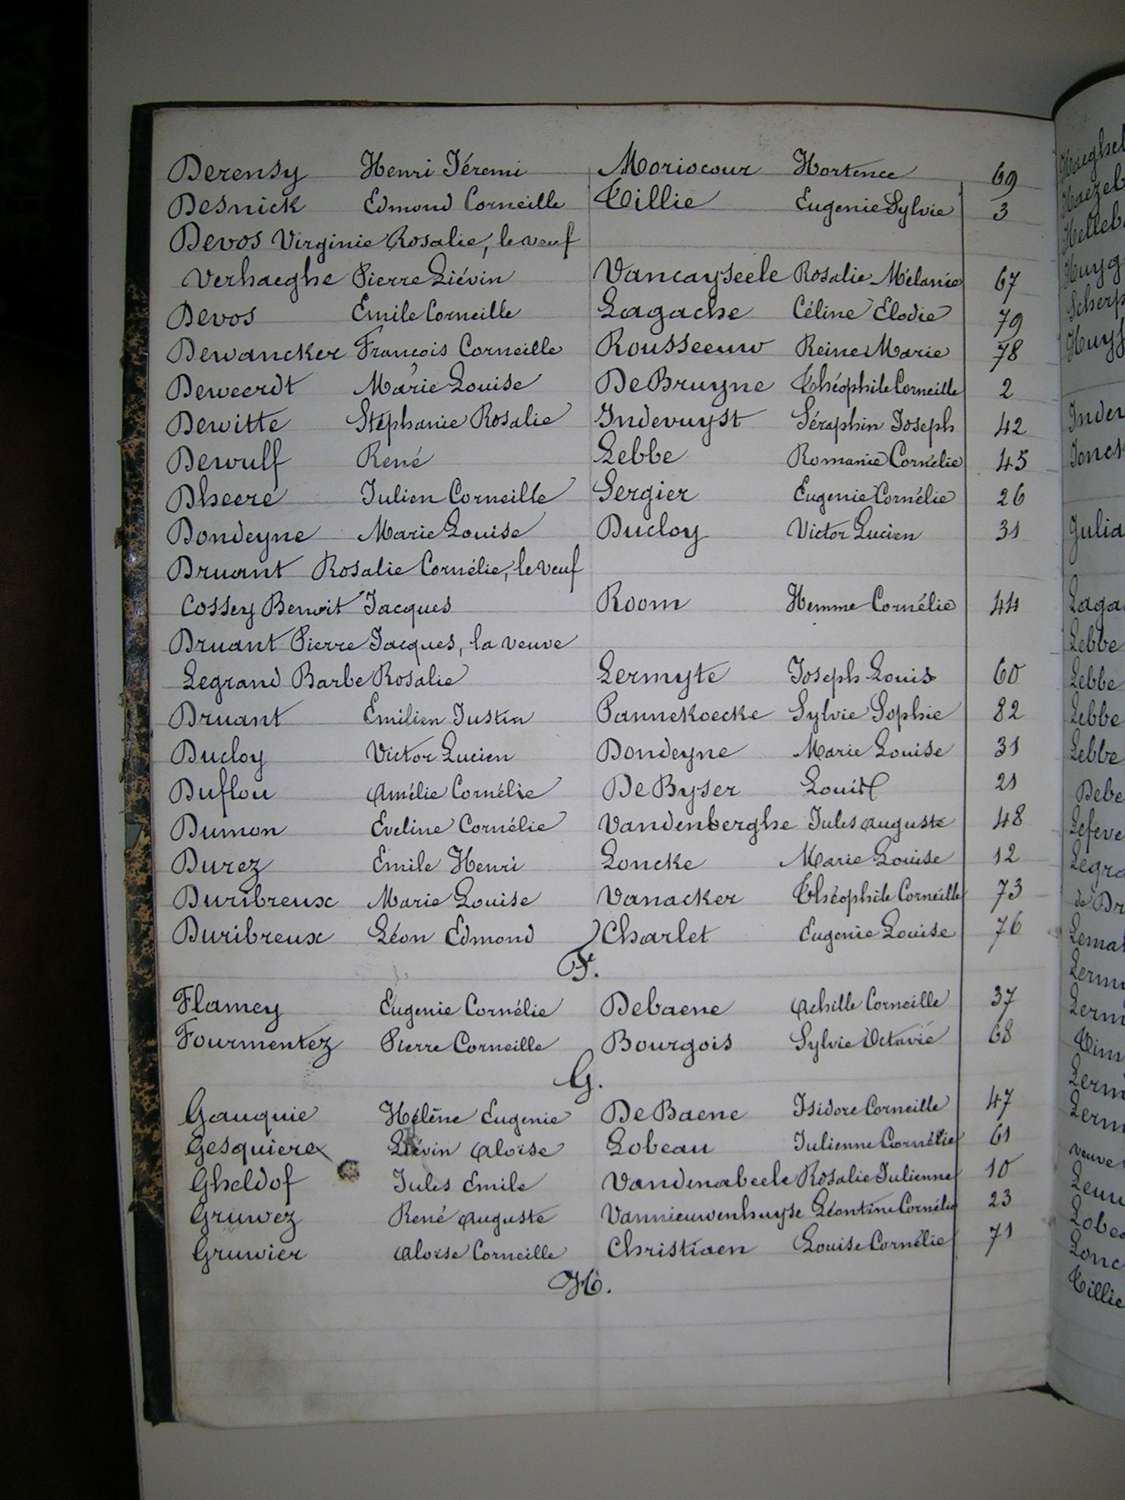 Derensy Henri Jéremi Moriocour Hortence 69
Desnick Edmond Corneille Tillie Eugenie Sylvie 3
Devos Virginie Rosalie, le veuf
Verhaeghe Pierre Liévin Vancayseele Rosalie Mélanie 67
Devos Emile Corneille Lagache Céline Elodie 79
Dewancker François Corneille Rousseeuw Reine Marie 78
Deweerdt Marie Louise De Bruyne Théophile Corneille 2
Dewitte Stéphanie Rosalie Indevuyst Séraphin Joseph 42
Dewulf René Lebbe Romanie Cornélie 45
Dheere Julien Corneille Sergier Eugenie Cornélie 26
Dondeyne Marie Louise Ducloy Victor Lucien 31
Druant Rosalie Cornélie, le veuf
Cossey Benoit Jacques Room Hemme Cornélie 44
Druant Pierre Jacques, la veuve
Legrand Barbe Rosalie Lermyte Joseph Louis 60
Druant Emilien Justin Pannekoecke Sylvie Sophie 82
Ducloy Victor Lucien Dondeyne Marie Louise 31
Duflou Amélie Cornélie De Byser Louis 21
Dumon Eveline Cornélie Vandenberghe Jules Auguste 48
Durez Emile Henri Loncke Marie Louise 12
Duribreux Marie Louise Vanacker Théophile Corneille 73
Duribreux Léon Edmond Charlet Eugenie Louise 76
F.
Flamey Eugenie Cornélie Debaene Achille Corneille 37
Fourmentez Pierre Corneille Bourgois Sylvie Octavie 68
G.
Gauquie Hélène Eugenie De Baene Isidore Corneille 47
Gesquiere Liévin Aloïse Lobeau Julienne Cornélie 61
Gheldof Jules Emile Vandenabeele Rosalie Julienne 10
Gruwez René Auguste Vannieuwenhuyse Léontine Cornélie 23
Gruwier Aloïse Corneille Christiaen Louise Cornélie 71
H.
Lebbe
Lebbe
Lebbe
Lebbe